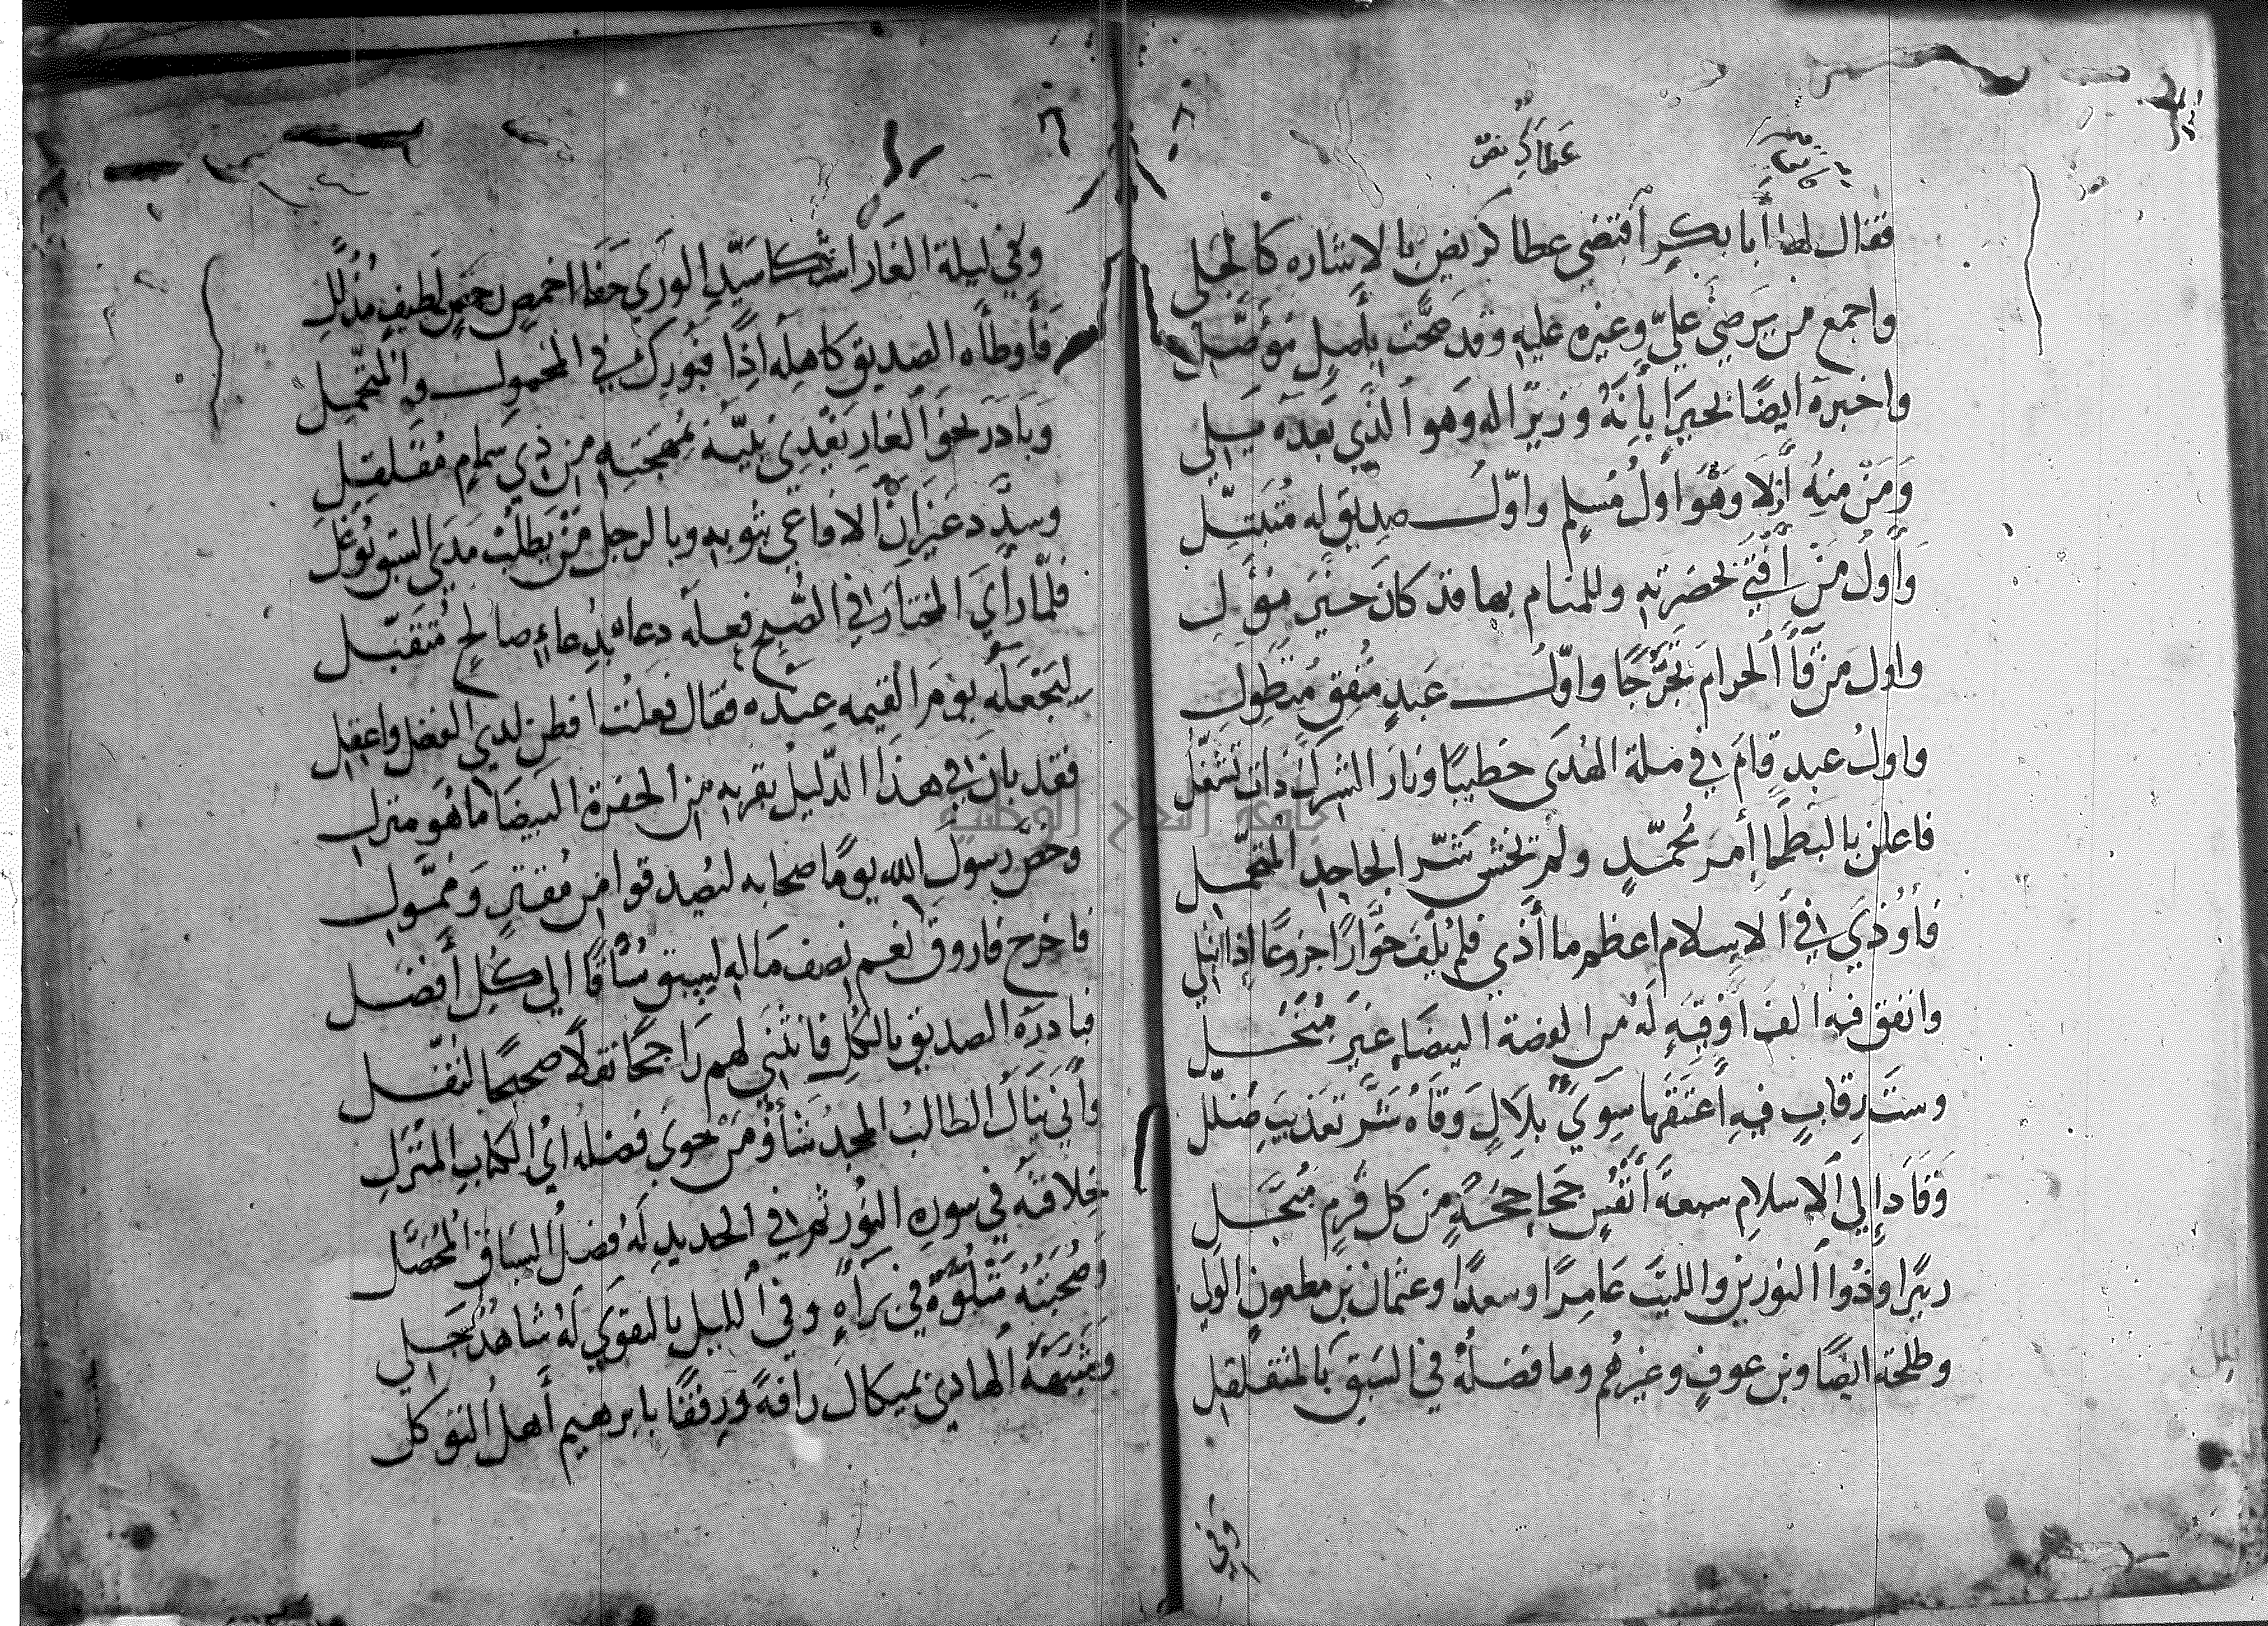 عطا كنصّ
فقال لها أبا بكرٍ اقتضى عطا كنصٍ بالاشاره كالجلي
واجمع من يرضى عليّ وغيره عليه وقد صحّت بأصلٍ مؤصّل
واخبره ايضًا بحيرا بأنه وزيرًا له وهو الذي بعده يلي
وَمَنْ منهُ اولا وهْوَ أولُ مُسلمٍ واوّل صديق له مُتبتّل
وأولُ مَنْ أفتى بحضرته وللمنام بها قد كان خير مؤول
واول من قاأ الحرام تحَرُّجًا واوّل عبدٍ منفق متطول
واول عبدٍ قام في ملة الهُدَى خطيبًا ونار الشرك ذات تشعّل
فاعلن بالبطحا أمر محمّدٍ ولم تخش شرّ الجاحد المتمحّل
فأوذي في الاسلام اعظم ما أذى فلم يُلفَ خوّارًا جزوعًا إذا ابتلي
وانفق فيه الف أوقيةٍ له من الفضة البيضاء غير مبخّل
وست رقابٍ فيه أعتقها سوى بلالٍ وقاه شرّ تعذيب ضلّل
وقاد إلى الاسلام سبعة أنفسٍ جحاجحةٍ من كل قرم مبجّل
زبيرًا وذوا النورين والليث عامرًا وسعدًا وعثمان بن مظعون الولي
وطلحة ايضًا وبن عوفٍ وغيرهُم وما فضله في السبق بالمتقلقل
وفي
وفي ليلة الغار اشتكا سيّد الورى حفا اخمصٍ رخصٍ لطيفٍ مذللِ
فأوطأه الصديق كاهله اذًا فبورك في المحمول والمتحمّل
وبادر نحو الغار يفدي نبيّه بمهجته من ذي سمامٍ مقلقل
وسدّد غيران الافاعي بثوبه وبالرجل مَنْ يطلب مدى السبق يوغل
فلمّا رأى المختار في الصّبح فعله دعا بدعاءٍ صالحٍ متقبّل
ليجعله يوم القيمه عنده فقال فعلت افطن لذي الفضل واعقل
فقد بان في هذا الدّليل بقربه من الحضرة البيضا ما هو منزل
وخصّ رسول الله يومًا صحابه ليصدقوا من مقترٍ وممَوّل
فاخرج فاروق نعم نصف ماله ليسبق سُبّاقًا الى كل أفضل
فبادره الصديق بالكل فانثنى لهم راجحًا نقلًا صحيحًا لنُقّل
وأنى ينال الطالبُ المجد شأوَ مَنْ حوى فضله آيُ الكتاب المنزل
خلافته في سورة النور ثم في الحديد له فضل السباق المحصّل
وصُحبتهُ متلوّةٌ في براءةٍ وفي الليل بالتقوى له شاهدٌ جلي
وشبّهه الهادي بميكال رافةً ورفقًا بابرهيم أهل التوكل